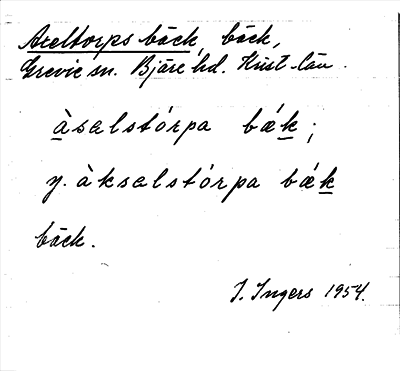 Axeltorps bäck, bäck,
Grevie sn. Bjäre hd. Krist. län.
àsalstórpa bǽk;
y. àksalstórpa bǽk
bäck.
I. Ingers 1954.